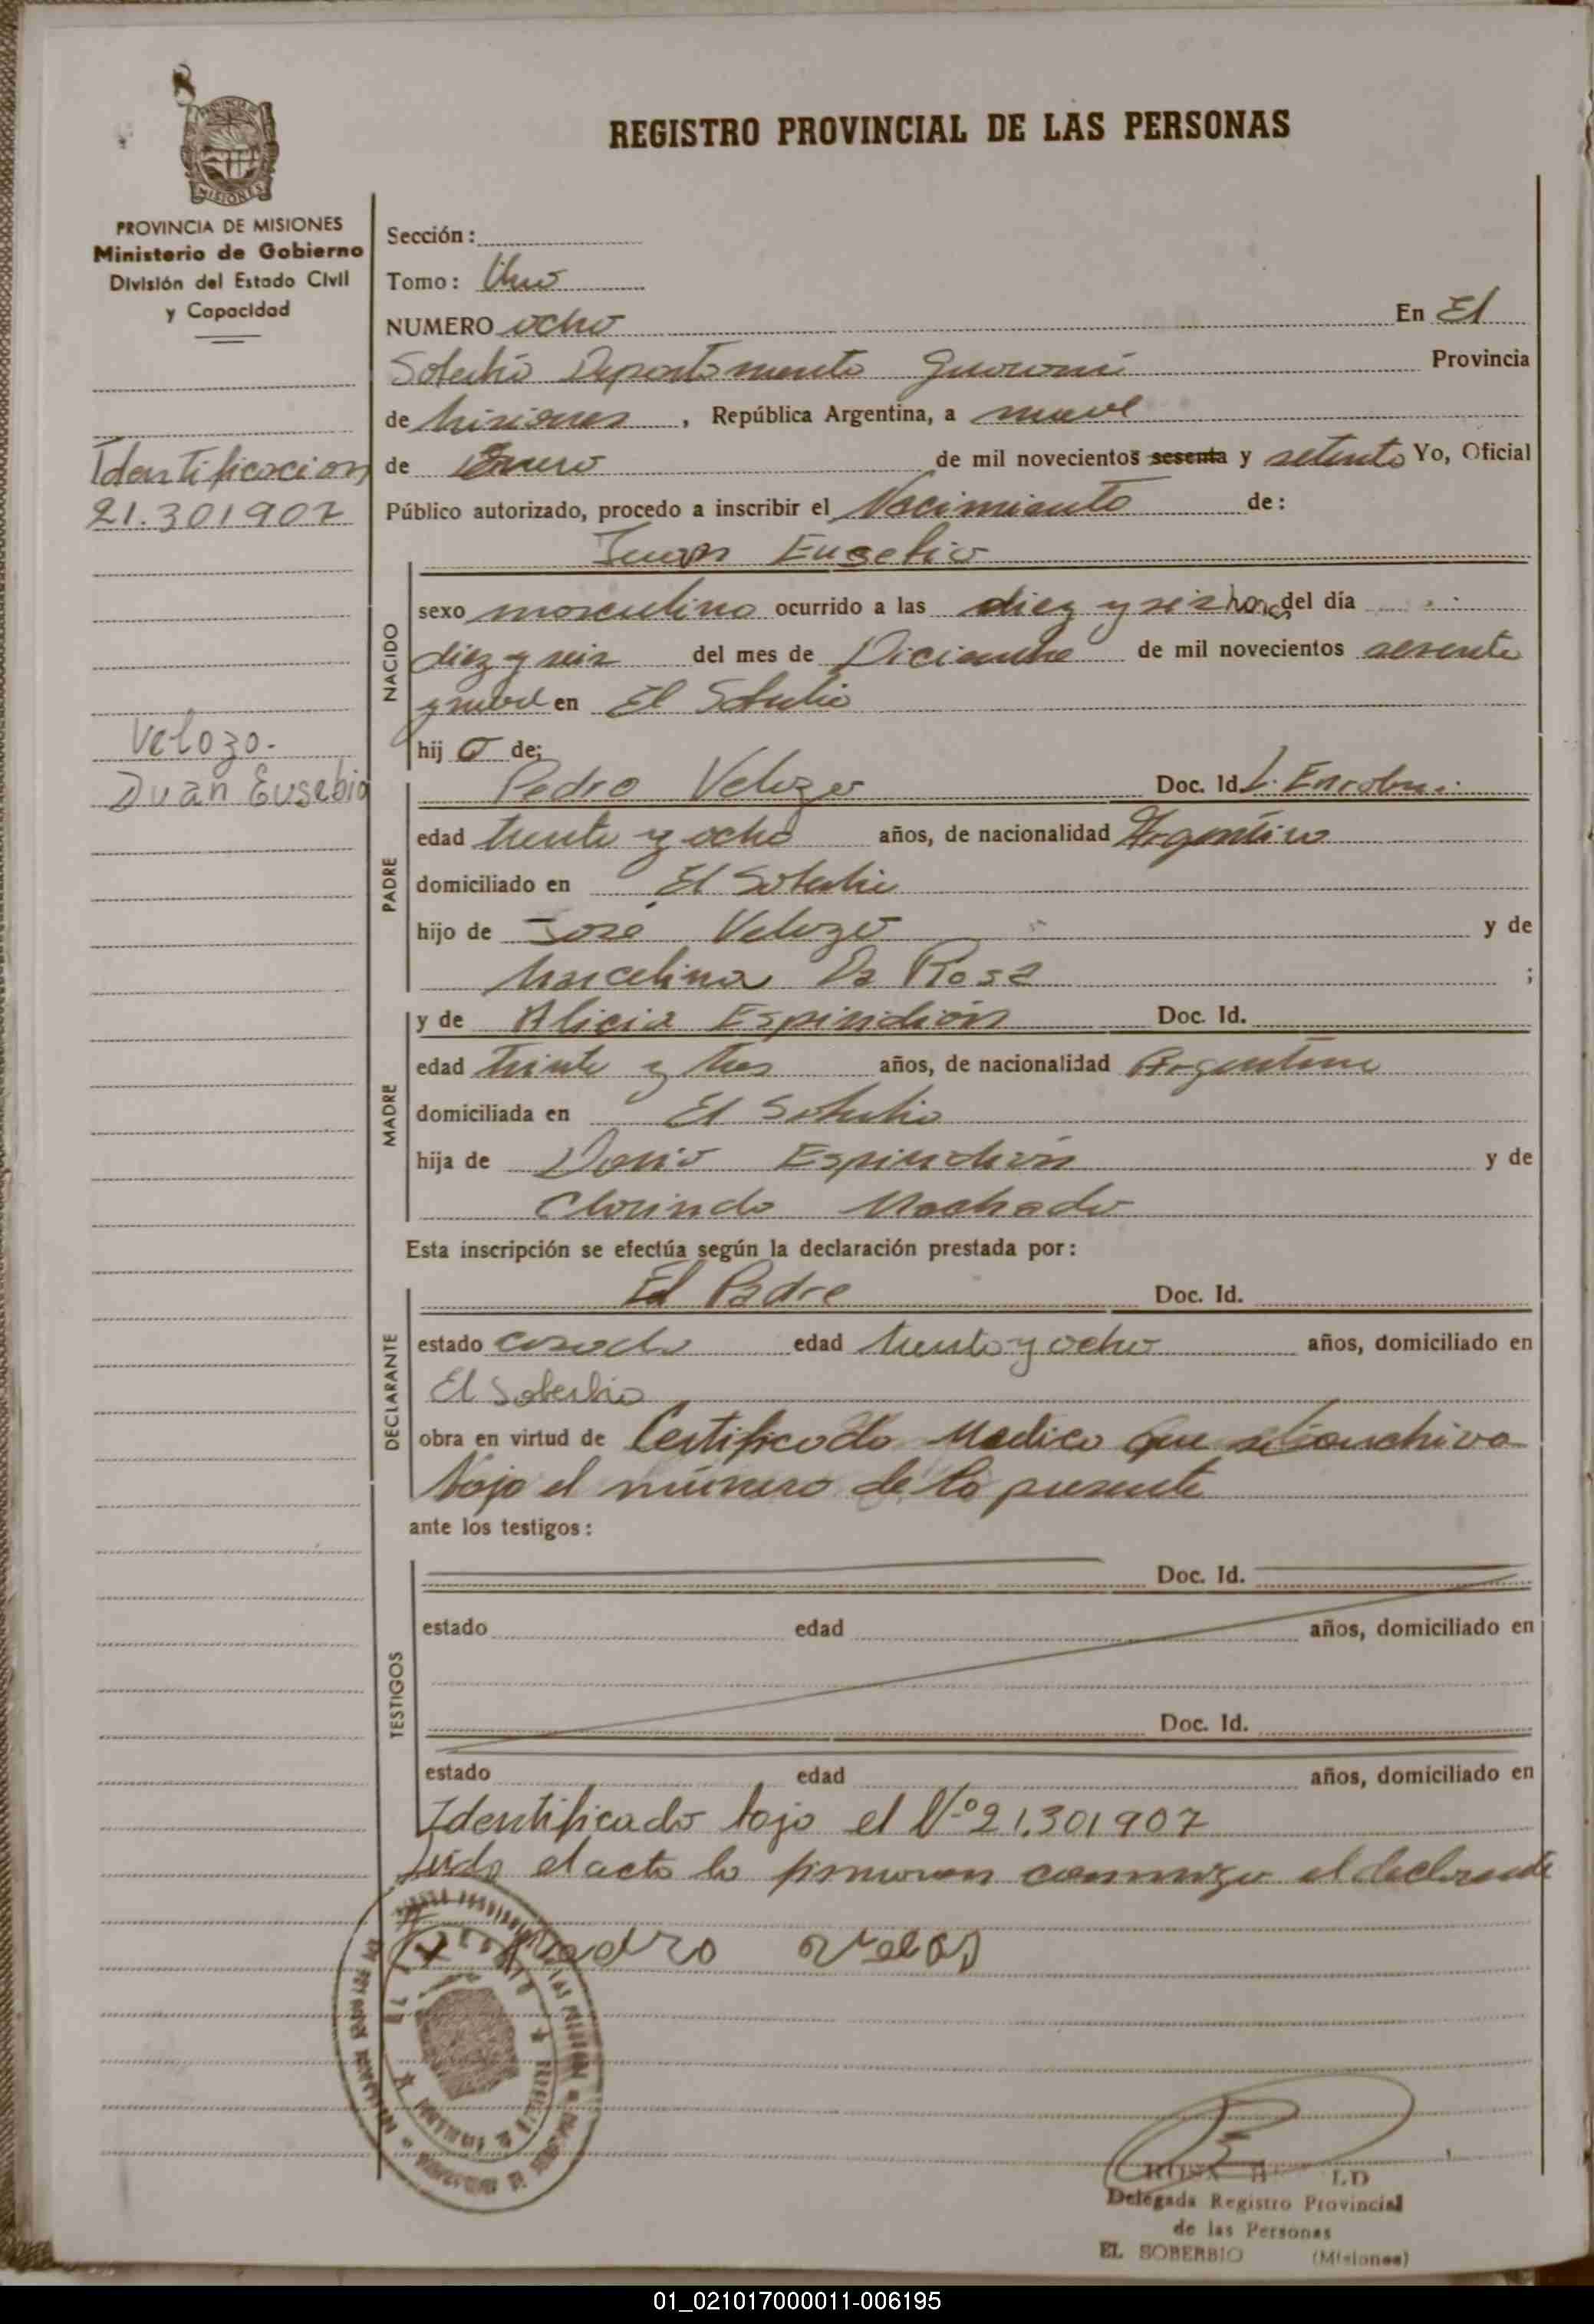 REGISTRO PROVINCIAL DE LAS PERSONAS
MISIONES
PROVINCIA DE MISIONES
Ministerio de Gobierno
División del Estado Civil
y Capacidad
Identificacion
21.301907
Velozo.
Juan Eusebio
Sección:
Tomo: Uno
NUMERO ocho En El
Soberbio Departamento Guaraní Provincia
de Misiones, República Argentina, a nueve
de Enero de mil novecientos sesenta y setenta Yo, Oficial
Público autorizado, procedo a inscribir el Nacimiento de:
Juan Eusebio
NACIDO
sexo masculino ocurrido a las diez y seis horas del día
diez y seis del mes de Diciembre de mil novecientos sesenta
y nueve en El Soberbio
hijo de:
PADRE
Pedro Velozo Doc. Id.
edad treinta y ocho años, de nacionalidad Argentino
domiciliado en El Soberbio
hijo de José Velozo y de
Marcelina Da Rosa ;
MADRE
y de Alicia Espindión Doc. Id.
edad treinta y tres años, de nacionalidad Argentina
domiciliada en El Soberbio
hija de Espindión y de
Clorinda Machado
Esta inscripción se efectúa según la declaración prestada por:
DECLARANTE
El Padre Doc. Id.
estado casado edad treinta y ocho años, domiciliado en
El Soberbio
obra en virtud de Certificado Medico que se archiva
bajo el número de la presente
ante los testigos:
TESTIGOS
Doc. Id.
estado edad años, domiciliado en
Doc. Id.
estado edad años, domiciliado en
Identificado bajo el Nº 21.301907
Leida el acta la firmaron conmigo el declarante
Pedro
LD
Delegada Registro Provincial
de las Personas
EL SOBERBIO (Misiones)
01_021017000011-006195